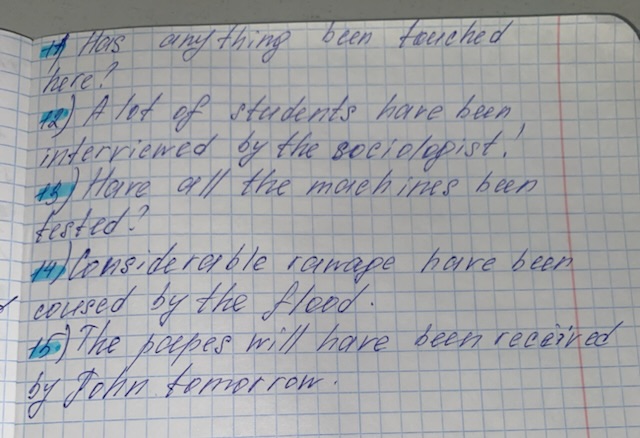 11) Has anything been touched
here?
12) A lot of students have been
interviewed by the sociologist!
13) Have all the machines been
tested?
14) Considerable ramage have been
coused by the flood.
15) The paepes will have been received
by John tomorrow.